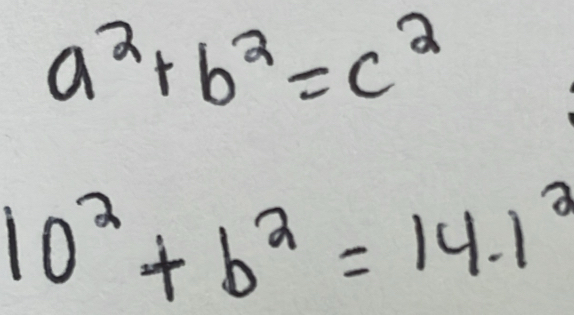 a² + b² = c²
10² + b² = 14.1²